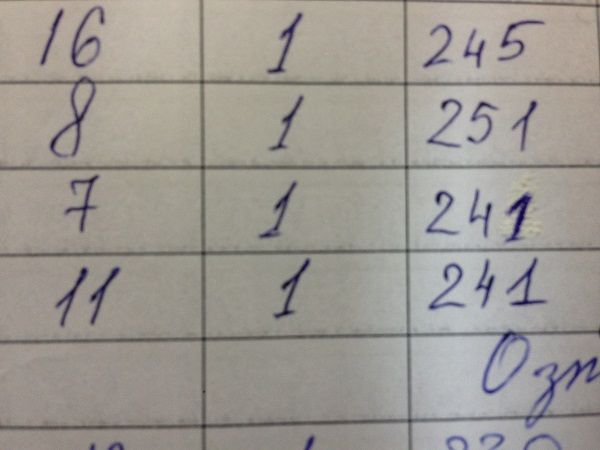 16 1 245
8 1 251
7 1 241
11 1 241